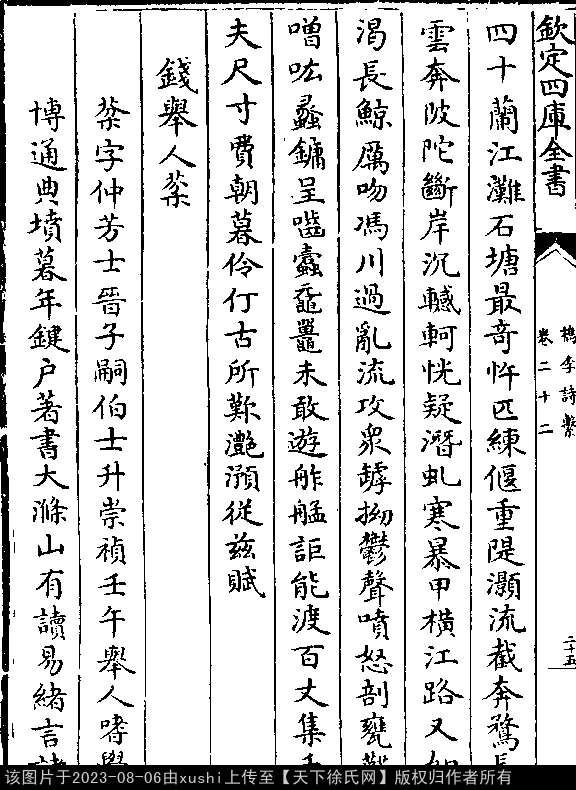 欽定四庫全書
檇李詩繫
卷二十二
二十五
四十蘭江灘石塘最奇忤匹練偃重隄灝流截奔騖長
雲奔陂陀斷岸沉轗軻恍疑潛虬寒暴甲橫江路又如
渴長鯨厲吻馮川過亂流攻衆罅拗鬱聲噴怒剖甕
噌吰蠡鏞呈嚙蠧黿鼉未敢遊舴艋詎能渡百丈集千
夫尺寸費朝暮伶仃古所歎灧澦從兹賦
錢舉人棻
棻字仲芳士晉子嗣伯士升崇禎壬午舉人嗜學
博通典墳暮年鍵户著書大滌山有讀易緒言諸
该图片于2023-08-06由xushi上传至【天下徐氏网】版权归作者所有